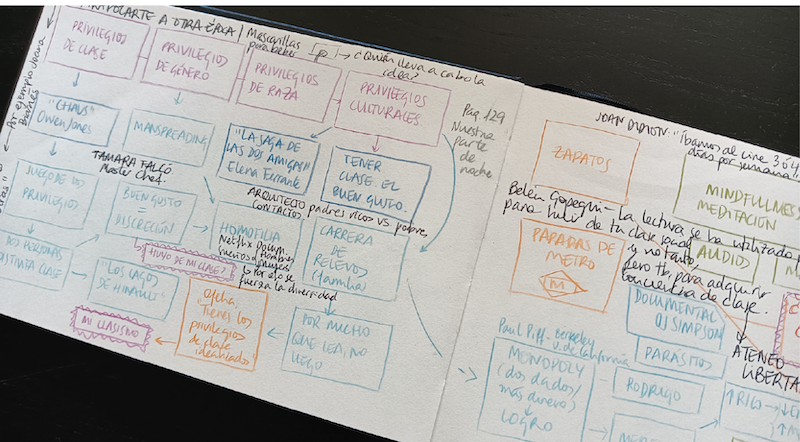 A OTRA ÉPOCA
Mascarillas
para beber
¿Quién lleva a cabo la
idea?
PRIVILEGIOS
DE CLASE
PRIVILEGIOS
DE GÉNERO
PRIVILEGIOS
DE RAZA
PRIVILEGIOS
CULTURALES
Por ejemplo
"CHAVS"
Owen Jones
MANSPREADING
"LA SAGA DE
LAS DOS AMIGAS"
Elena Ferrante
TENER
CLASE. EL
BUEN GUSTO
Pag 129
Nuestra
parte
de
noche
TAMARA FALCÓ
Master Chef
JUEGO DE DOS
PRIVILEGIOS
BUEN GUSTO
=
DISCRECIÓN
ARQUITECTO padres ricos vs. pobre.
CONTACTOS.
HOMOFILIA
Netflix docum.
hombres
CARRERA
DE
RELEVOS
(familia)
DISTINTA CLASE
"LOS LAGOS
DE
¿HUYO DE MI CLASE?
la diversidad
MI CLASISMO
"Tienes los
privilegios
de clase
idealizados"
POR MUCHO
QUE LEA, NO
LLEGO
JOAN DIDION: "Íbamos al cine 3 ó 4
días por semana"
ZAPATOS
MINDFULLNESS
MEDITACIÓN
Belén Gopegui - La lectura se ha utilizado
para huir de tu clase social
y no tanto,
pero tb, para adquirir
conciencia de clase.
PARADAS DE
METRO
M
AUDIOS
DOCUMENTAL
OJ SIMPSON
PARÁSITOS
ATENEO
Paul Piff. Berkeley
U. de California
MONOPOLY
(dos dados/
más dinero)
LOGRO
RODRIGO